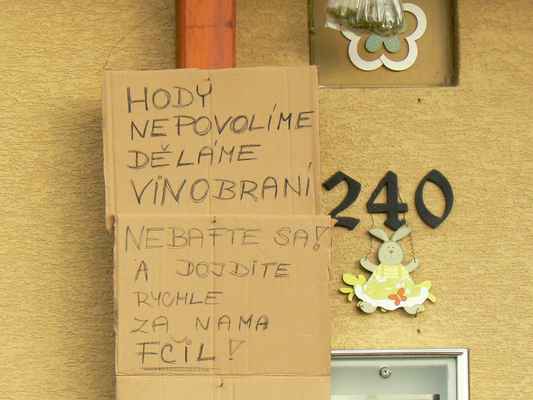 HODY
NEPOVOLÍME
DĚLÁME
VINOBRANÍ
240
NEBAFTE SA!
A DOJDITE
RYCHLE
ZA NAMA
FČIL!